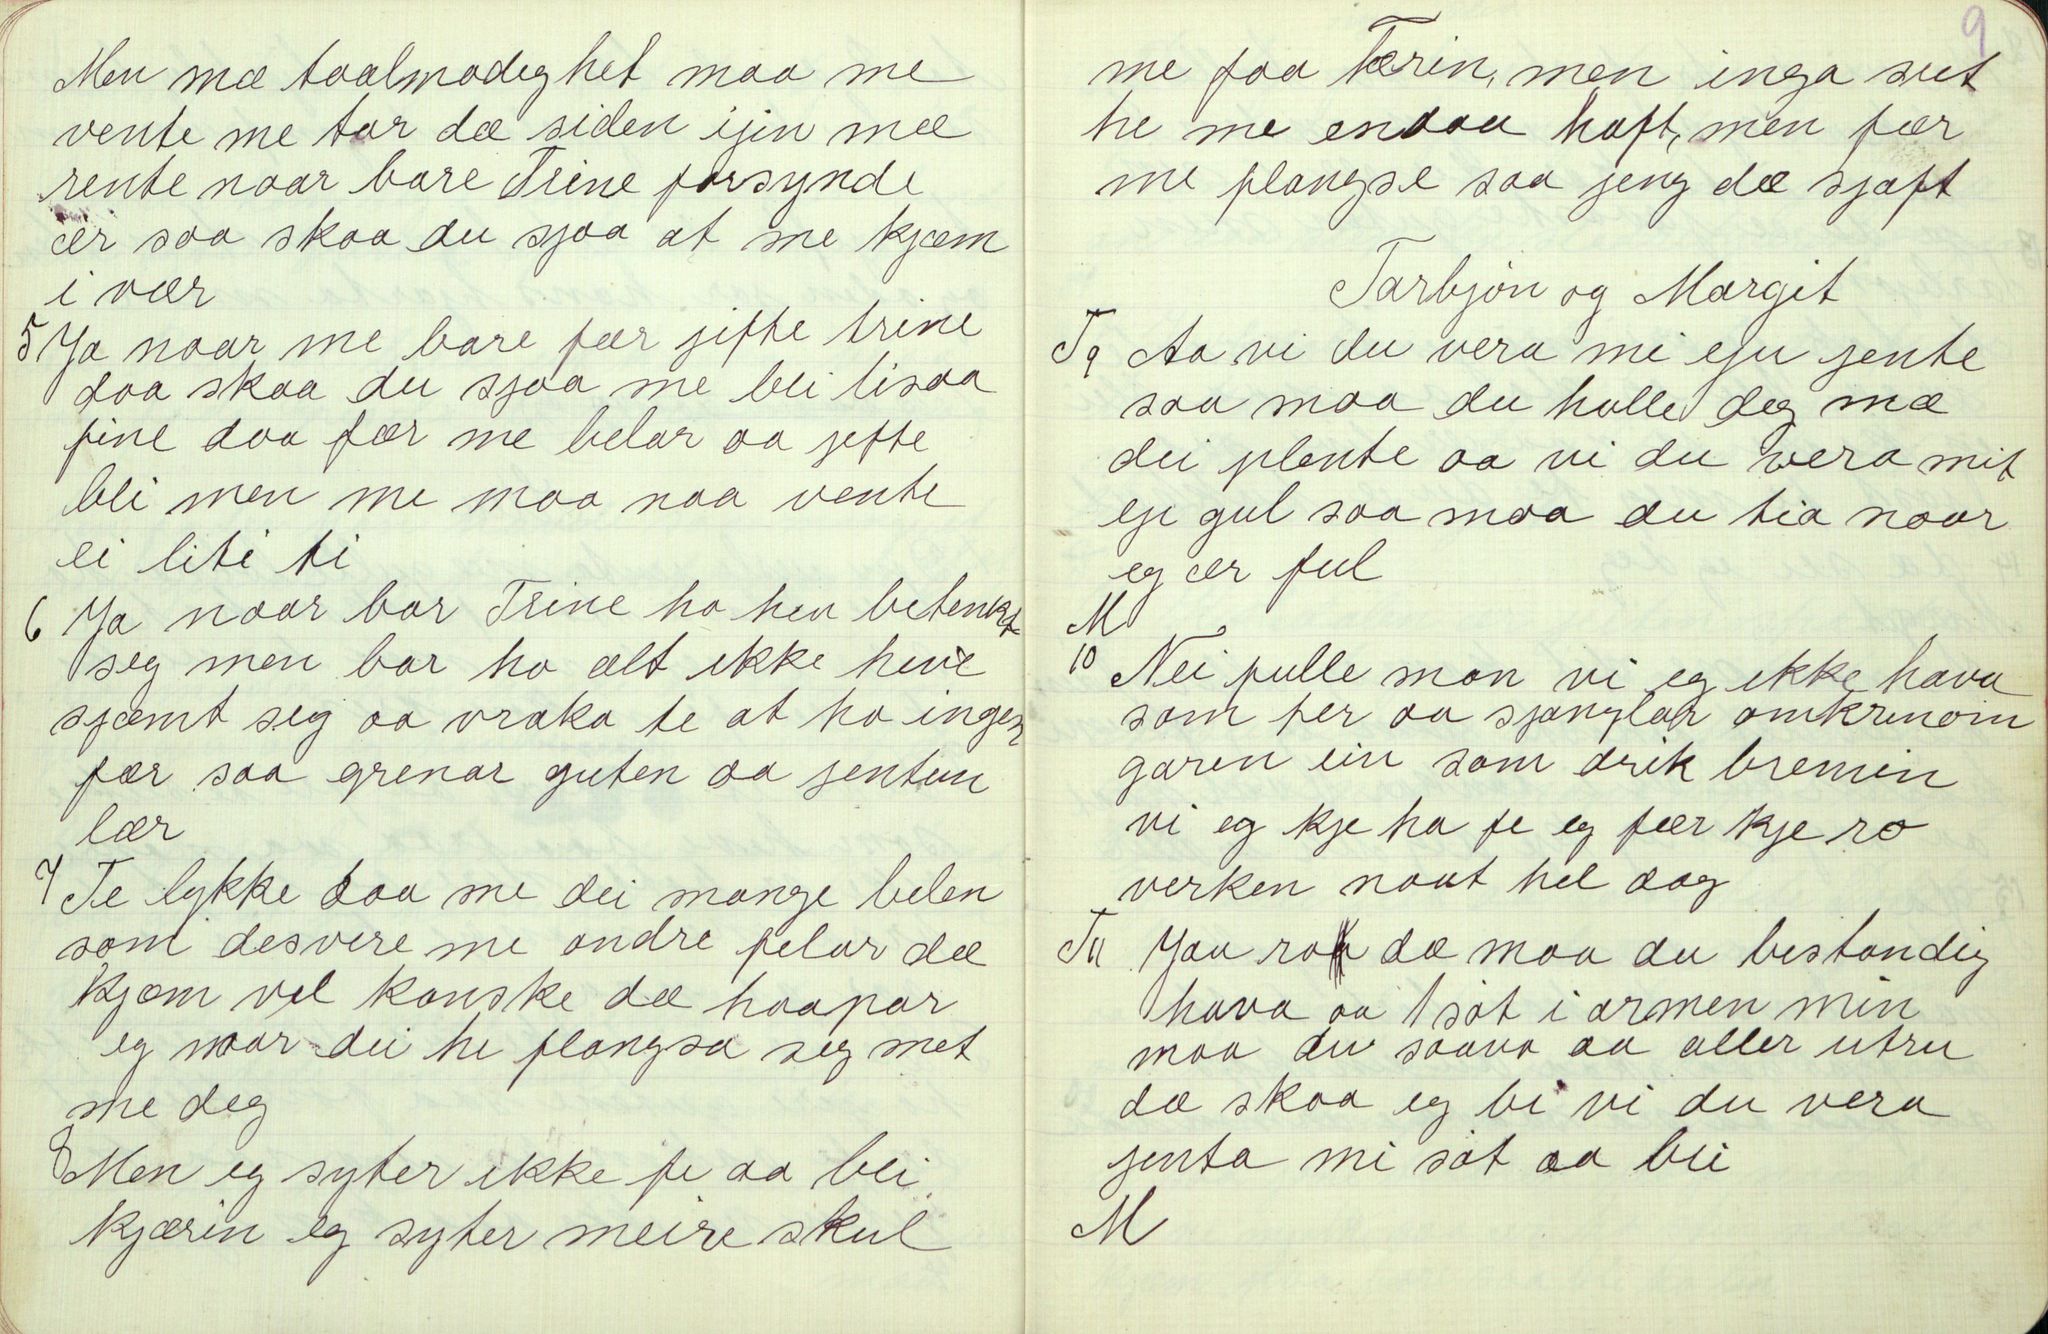 Men mæ toolmodeghet maa me
vente me tar dæ siden ijin mæ
rente naar bare Trine forsynde
ær saa skaa du sjaa at me kjæm
i vær
5 Ja naar me bare fær jifte trine
daa skaa du sjaa me bli lisaa
fine daa fær me belar aa jefte
bli men me maa naa vente
ei liti ti
6 Ja naar bar Trine ho hev betenkt
seg men bar ho ælt ikke heve
sjæmt seg aa vraka te at ho ingen
fær saa grenar guten aa jentun
lær
7 Te lykke daa me dei mange belen
som desvere me andre felar dæ
kjæm vel kanske dæ haapar
eg naar dei he plangsa seg met
me deg
8 Men eg syter ikke fe aa bli
kjærin eg syter meire skul
9
me faa Færin, men inga sut
he me endaa haft, men fær
me plangse saa jeng dæ sjaft
Tarbjøn og Margit
T 9 Aa vi du vera mi eju jente
saa maa du halle deg mæ
dei plente aa vi du vera mit
eje gul saa maa du tia naar
eg ær ful
M
10 Nei fulle man vi eg ikke hava
som fer aa sjanglar omkrinom
garen ein som drik bremin
vi eg kje ha fe eg fær kje ro
verken naat hel dag
T 11 Jaa ro dæ maa du bestandig
hava aa søt i armen min
maa du saava aa aller utru
dæ skaa eg bi vi du vera
jenta mi søt aa bli
M